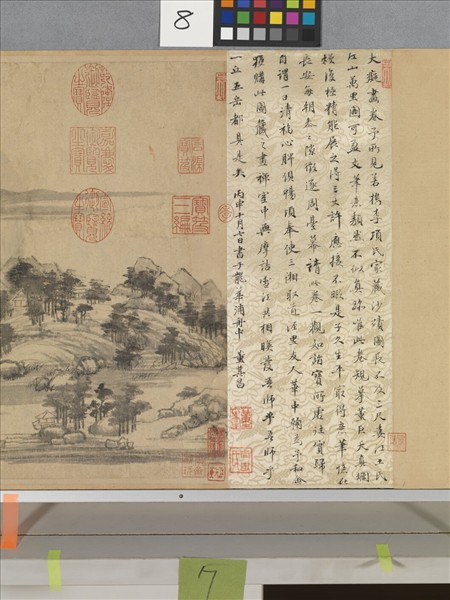 8
大癡畫卷予所見若檇李項氏家藏沙磧圖長不及三尺婁江王氏
江山萬里圖可盈丈筆意頹然不似真跡唯此卷規摹董巨天真爛
漫復極精能展之得三丈許應接不暇是子久生平最得意筆憶在
長安每朝參之隙徵逐周臺幕請此卷一觀如詣寶所虛往實歸
自謂一日清福心脾俱暢頃奉使三湘取道涇里友人華中翰為予和會
獲購此圖藏之畫禪室中與摩詰雪江共相映發吾師乎吾師乎
一丘五岳都具是矣 丙申十月七日書於龍華浦舟中 董其昌
寶笈三編
宣統御覽之寶
7